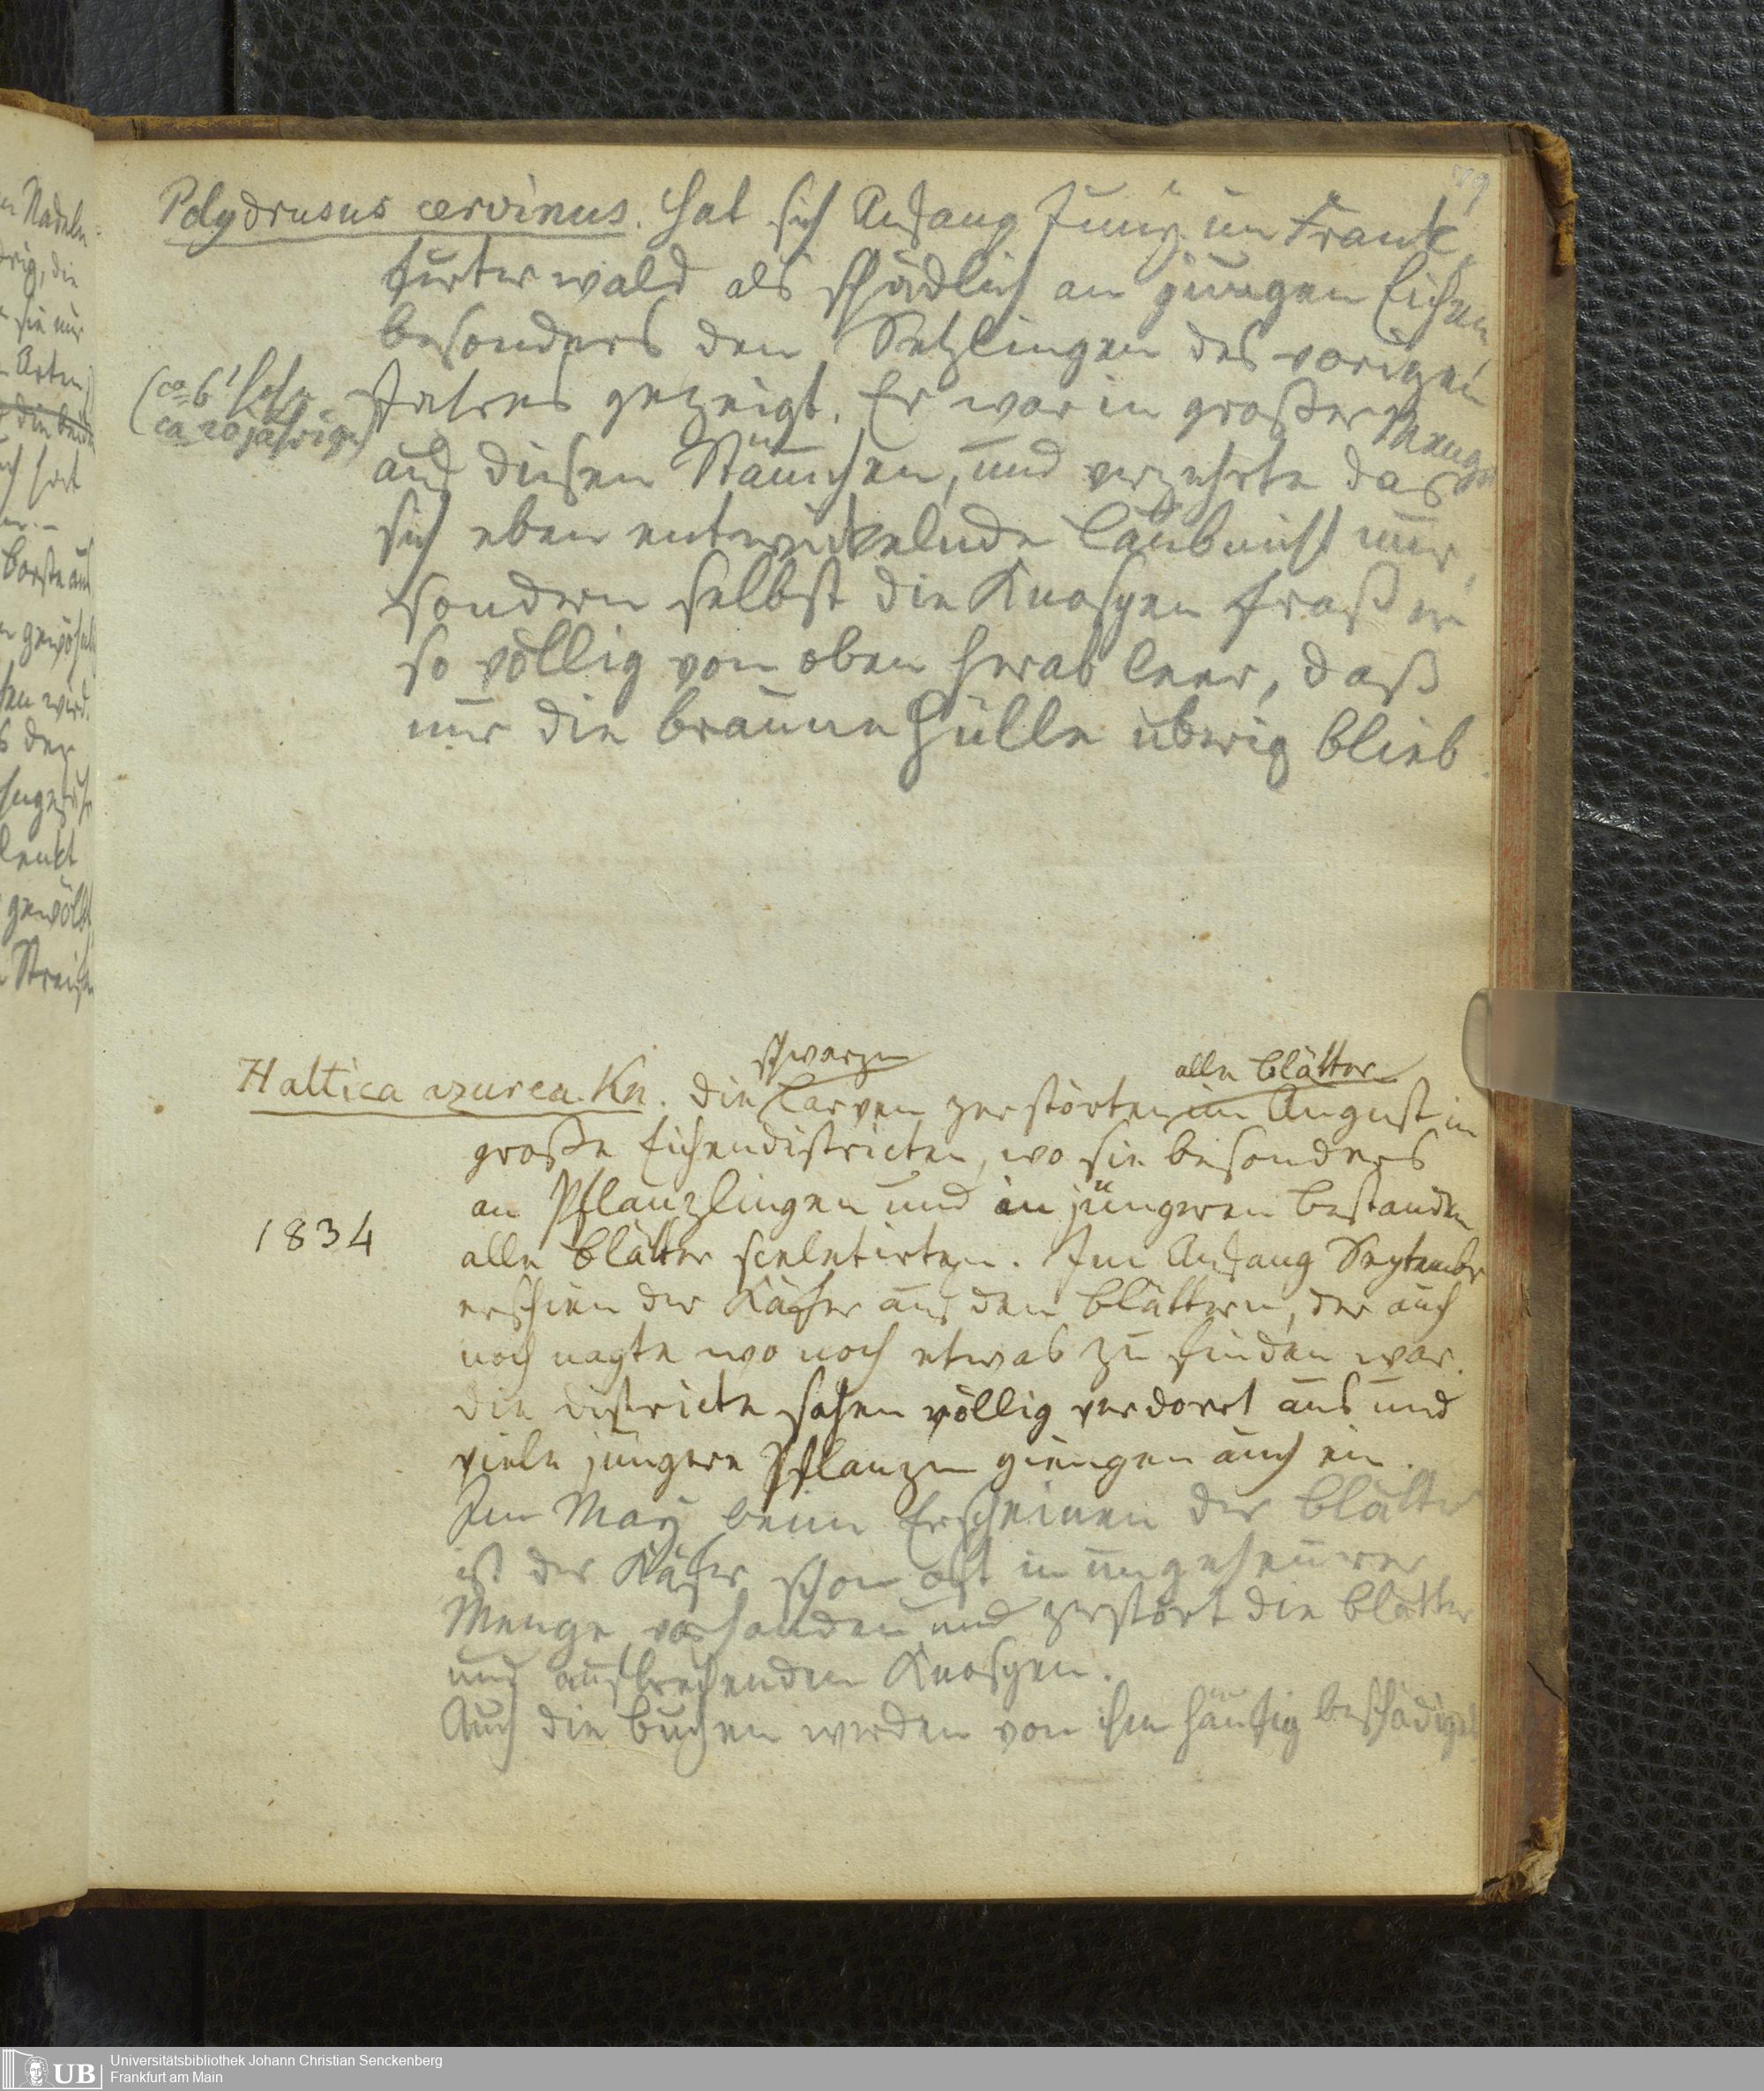 79
Polydrusus cervinus. hat sich Anfang Juny im Frank
furter wald als schädlich an jungen Eichen
besonders den Setzlingen des vorigen
Jahres gezeigt. Er war in großer Menge
(ca 6' hohe
ca 20 jährige)
auf diesen Stämchen, und verzehrte das
sich eben entwickelnde Laub nicht nur,
sondern selbst die Knospen fraß er
so völlig von oben herab leer, daß
nur die braune Hülle übrig blieb.
schwarzen
alle Blätter
Haltica azurea. Kn. die Larven zerstörten im August in
große Eichendistricten, wo sie besonders
an Pflanzlingen und in jüngeren Bestanden
1834
alle Blätter sceletirten. Im Anfang Septembr
erschien der Käfer aus den Blättern, der auch
noch nagte wo noch etwas zu finden war.
die districte sahen völlig verdorrt aus und
viele jüngere Pflanzen giengen auch ein.
Im May beim Erscheinen der Blätter
ist der Käfer schon oft in ungeheurer
Menge vorhanden und zerstört die Blätter
und ausbrechenden Knospen.
Auch die Buchen werden von ihm häufig beschädigt
n Nadeln
die
sie nur
Arten
die beide
Borste auf
wird.
der
lenkt
gewölbt
UB
Universitätsbibliothek Johann Christian Senckenberg
Frankfurt am Main